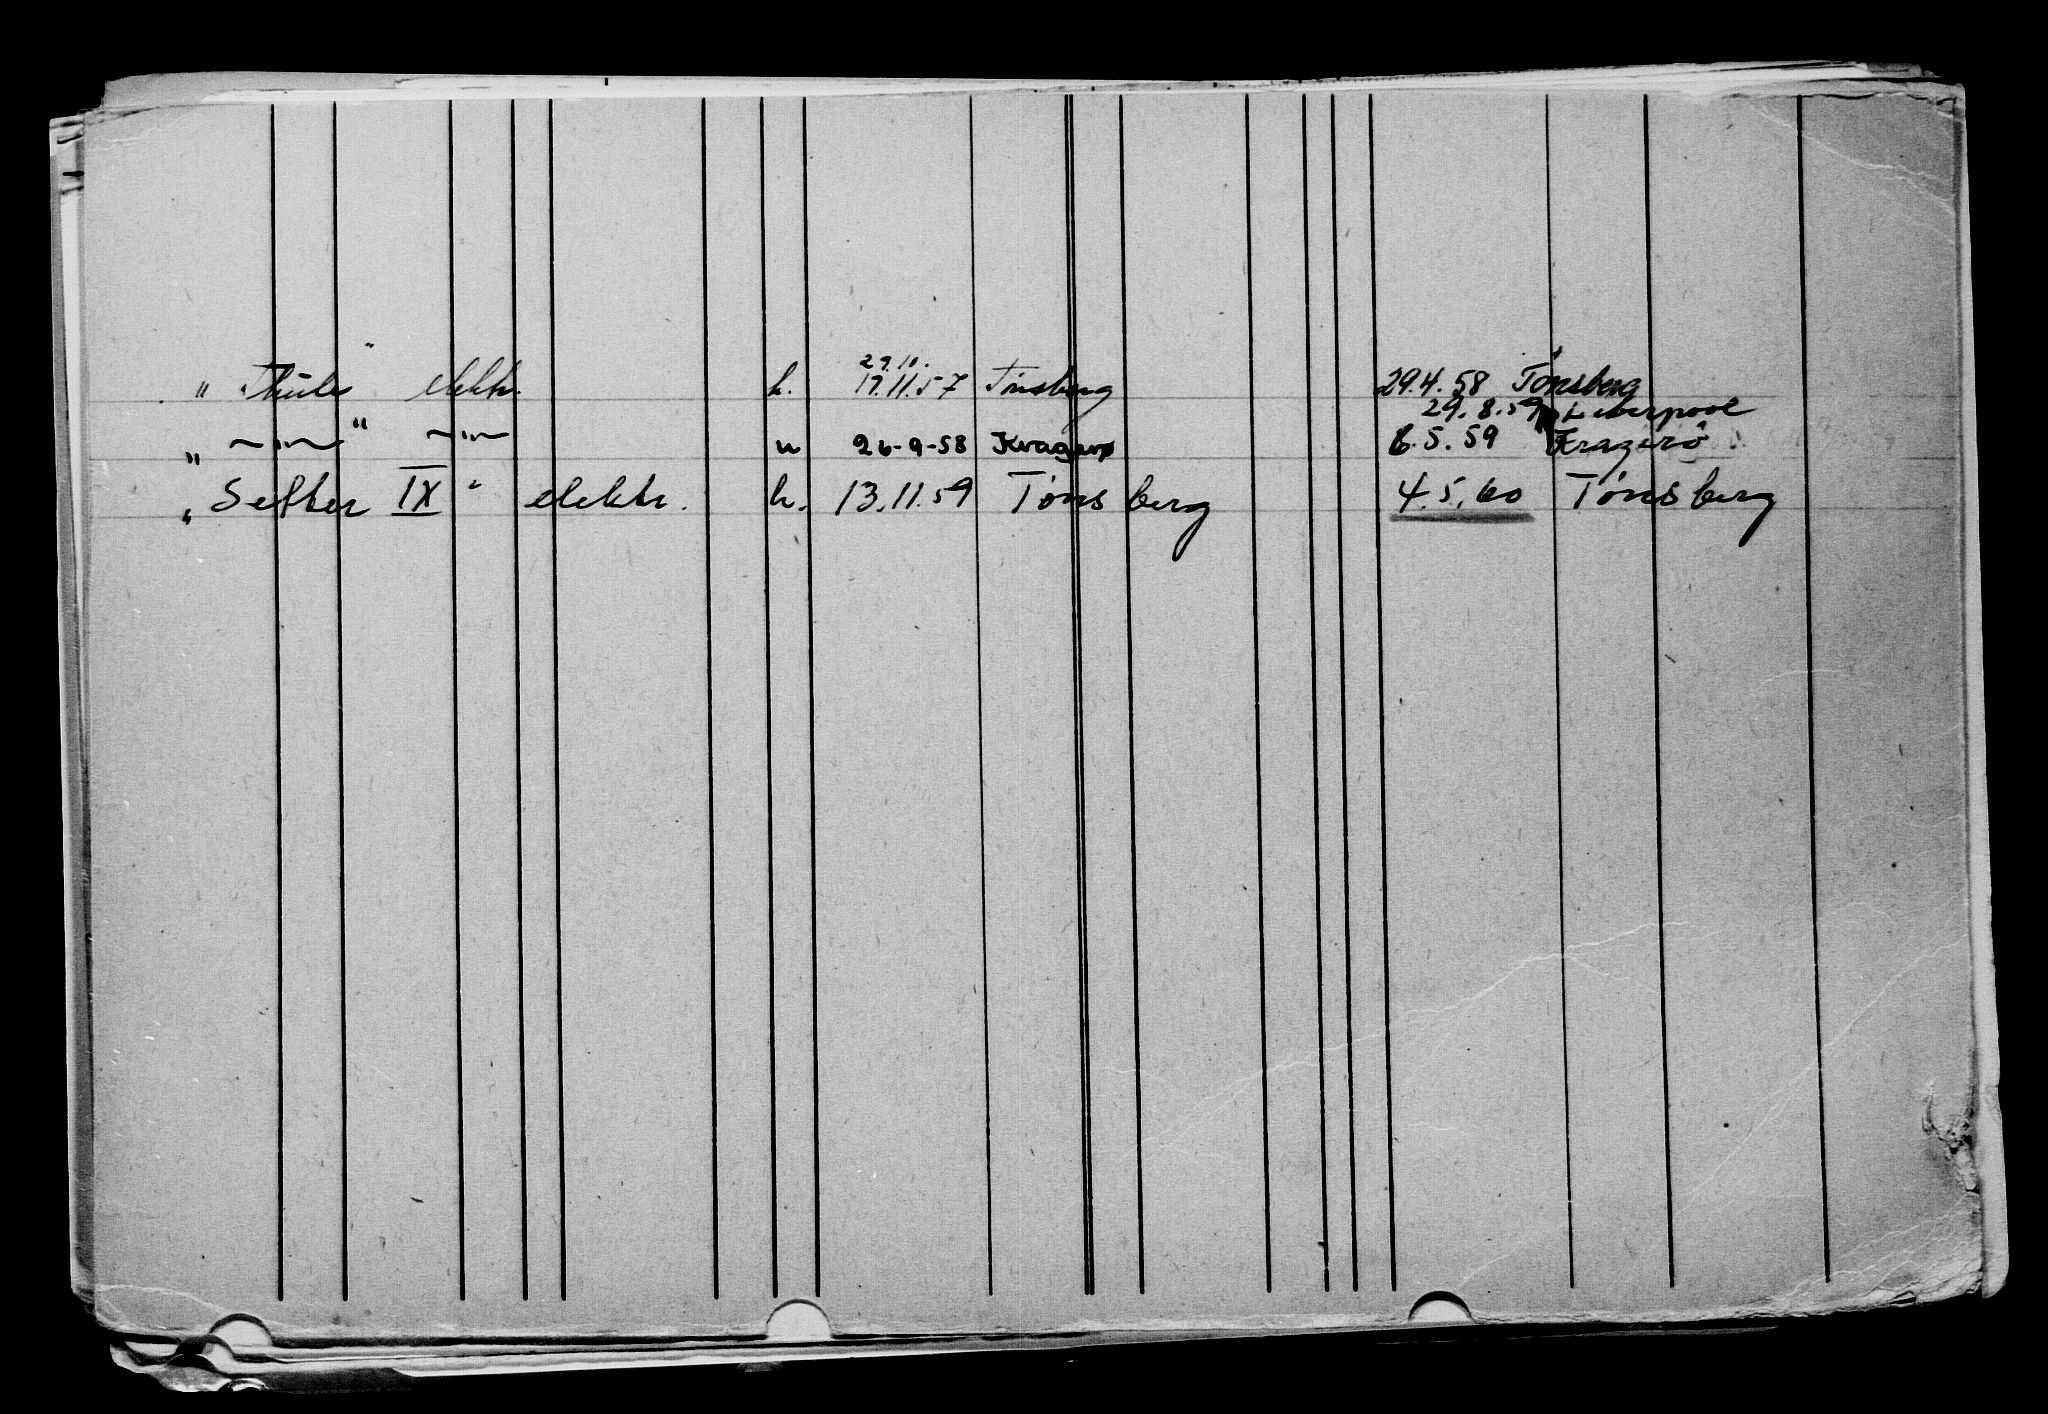 29.10.
" Thule " elektr. h. 17.11.57 Tønsberg 29.4.58 Tønsberg
29.8.59 Liverpool
" —"— " —"— u 26-9-58 Kragerø 6.5.59 Kragerö
" Sefter IX " elektr. h. 13.11.59 Tønsberg 4.5.60 Tønsberg